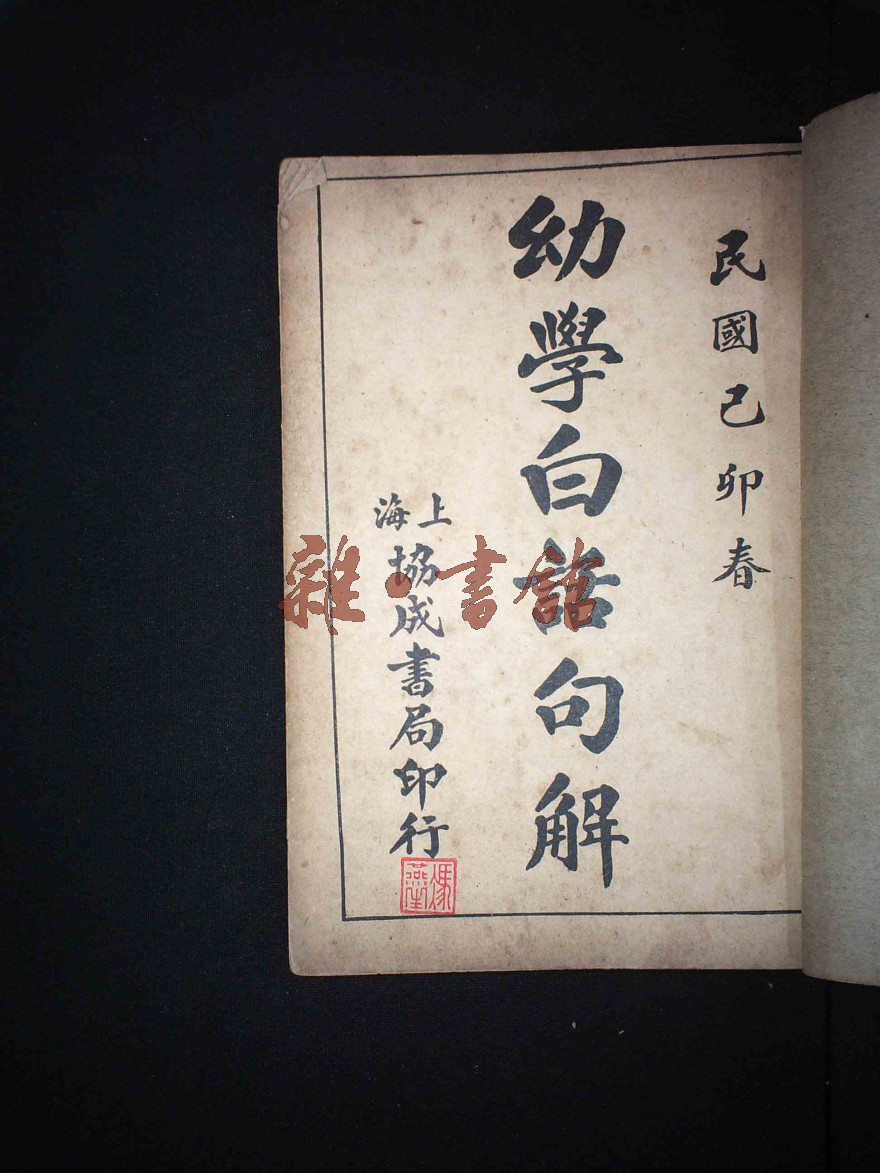 民國己卯春
幼學白話句解
上海
協成書局印行
雜·書館